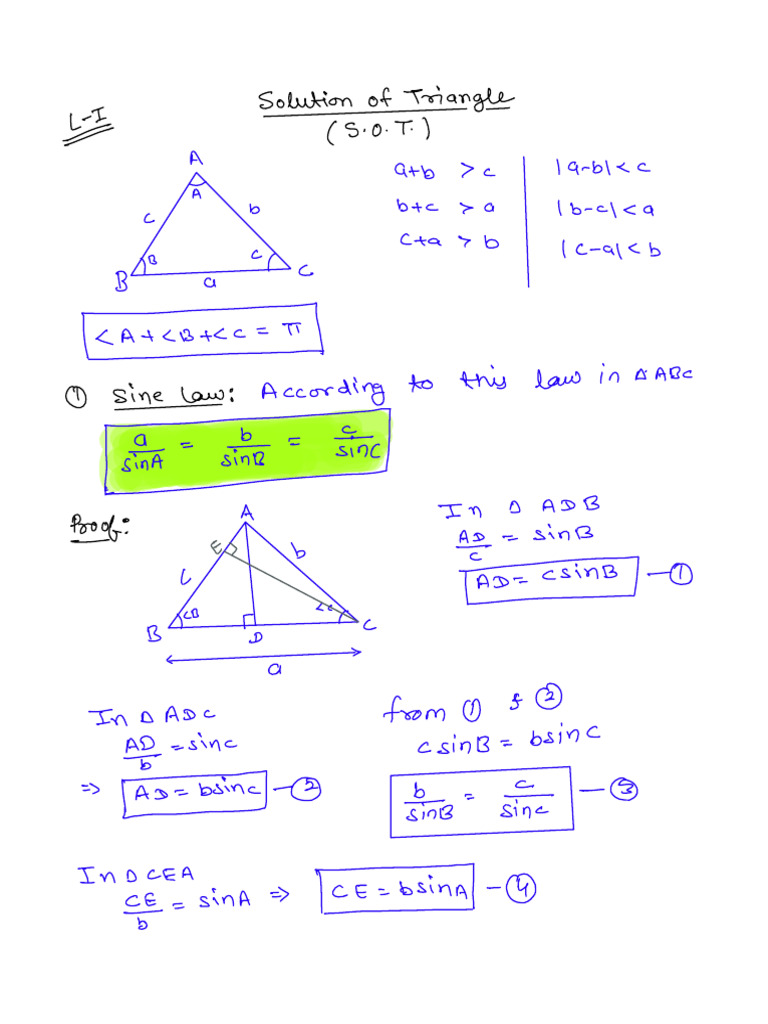 L-I
Solution of Triangle
(S.O.T.)
A
A
c
b
B
C
B
a
C
a+b > c
|a-b| < c
b+c > a
|b-c| < a
c+a > b
|c-a| < b
<A+<B+<C = π
① Sine law: According to this law in △ABC
a/sinA = b/sinB = c/sinC
Proof:
A
E
b
c
∠B
∠C
B
D
C
a
In △ ADB
AD/c = sinB
AD = csinB —①
In △ ADC
AD/b = sinC
=> AD = bsinC —②
from ① & ②
csinB = bsinC
b/sinB = c/sinC —③
In △ CEA
CE/b = sinA => CE = bsinA —④